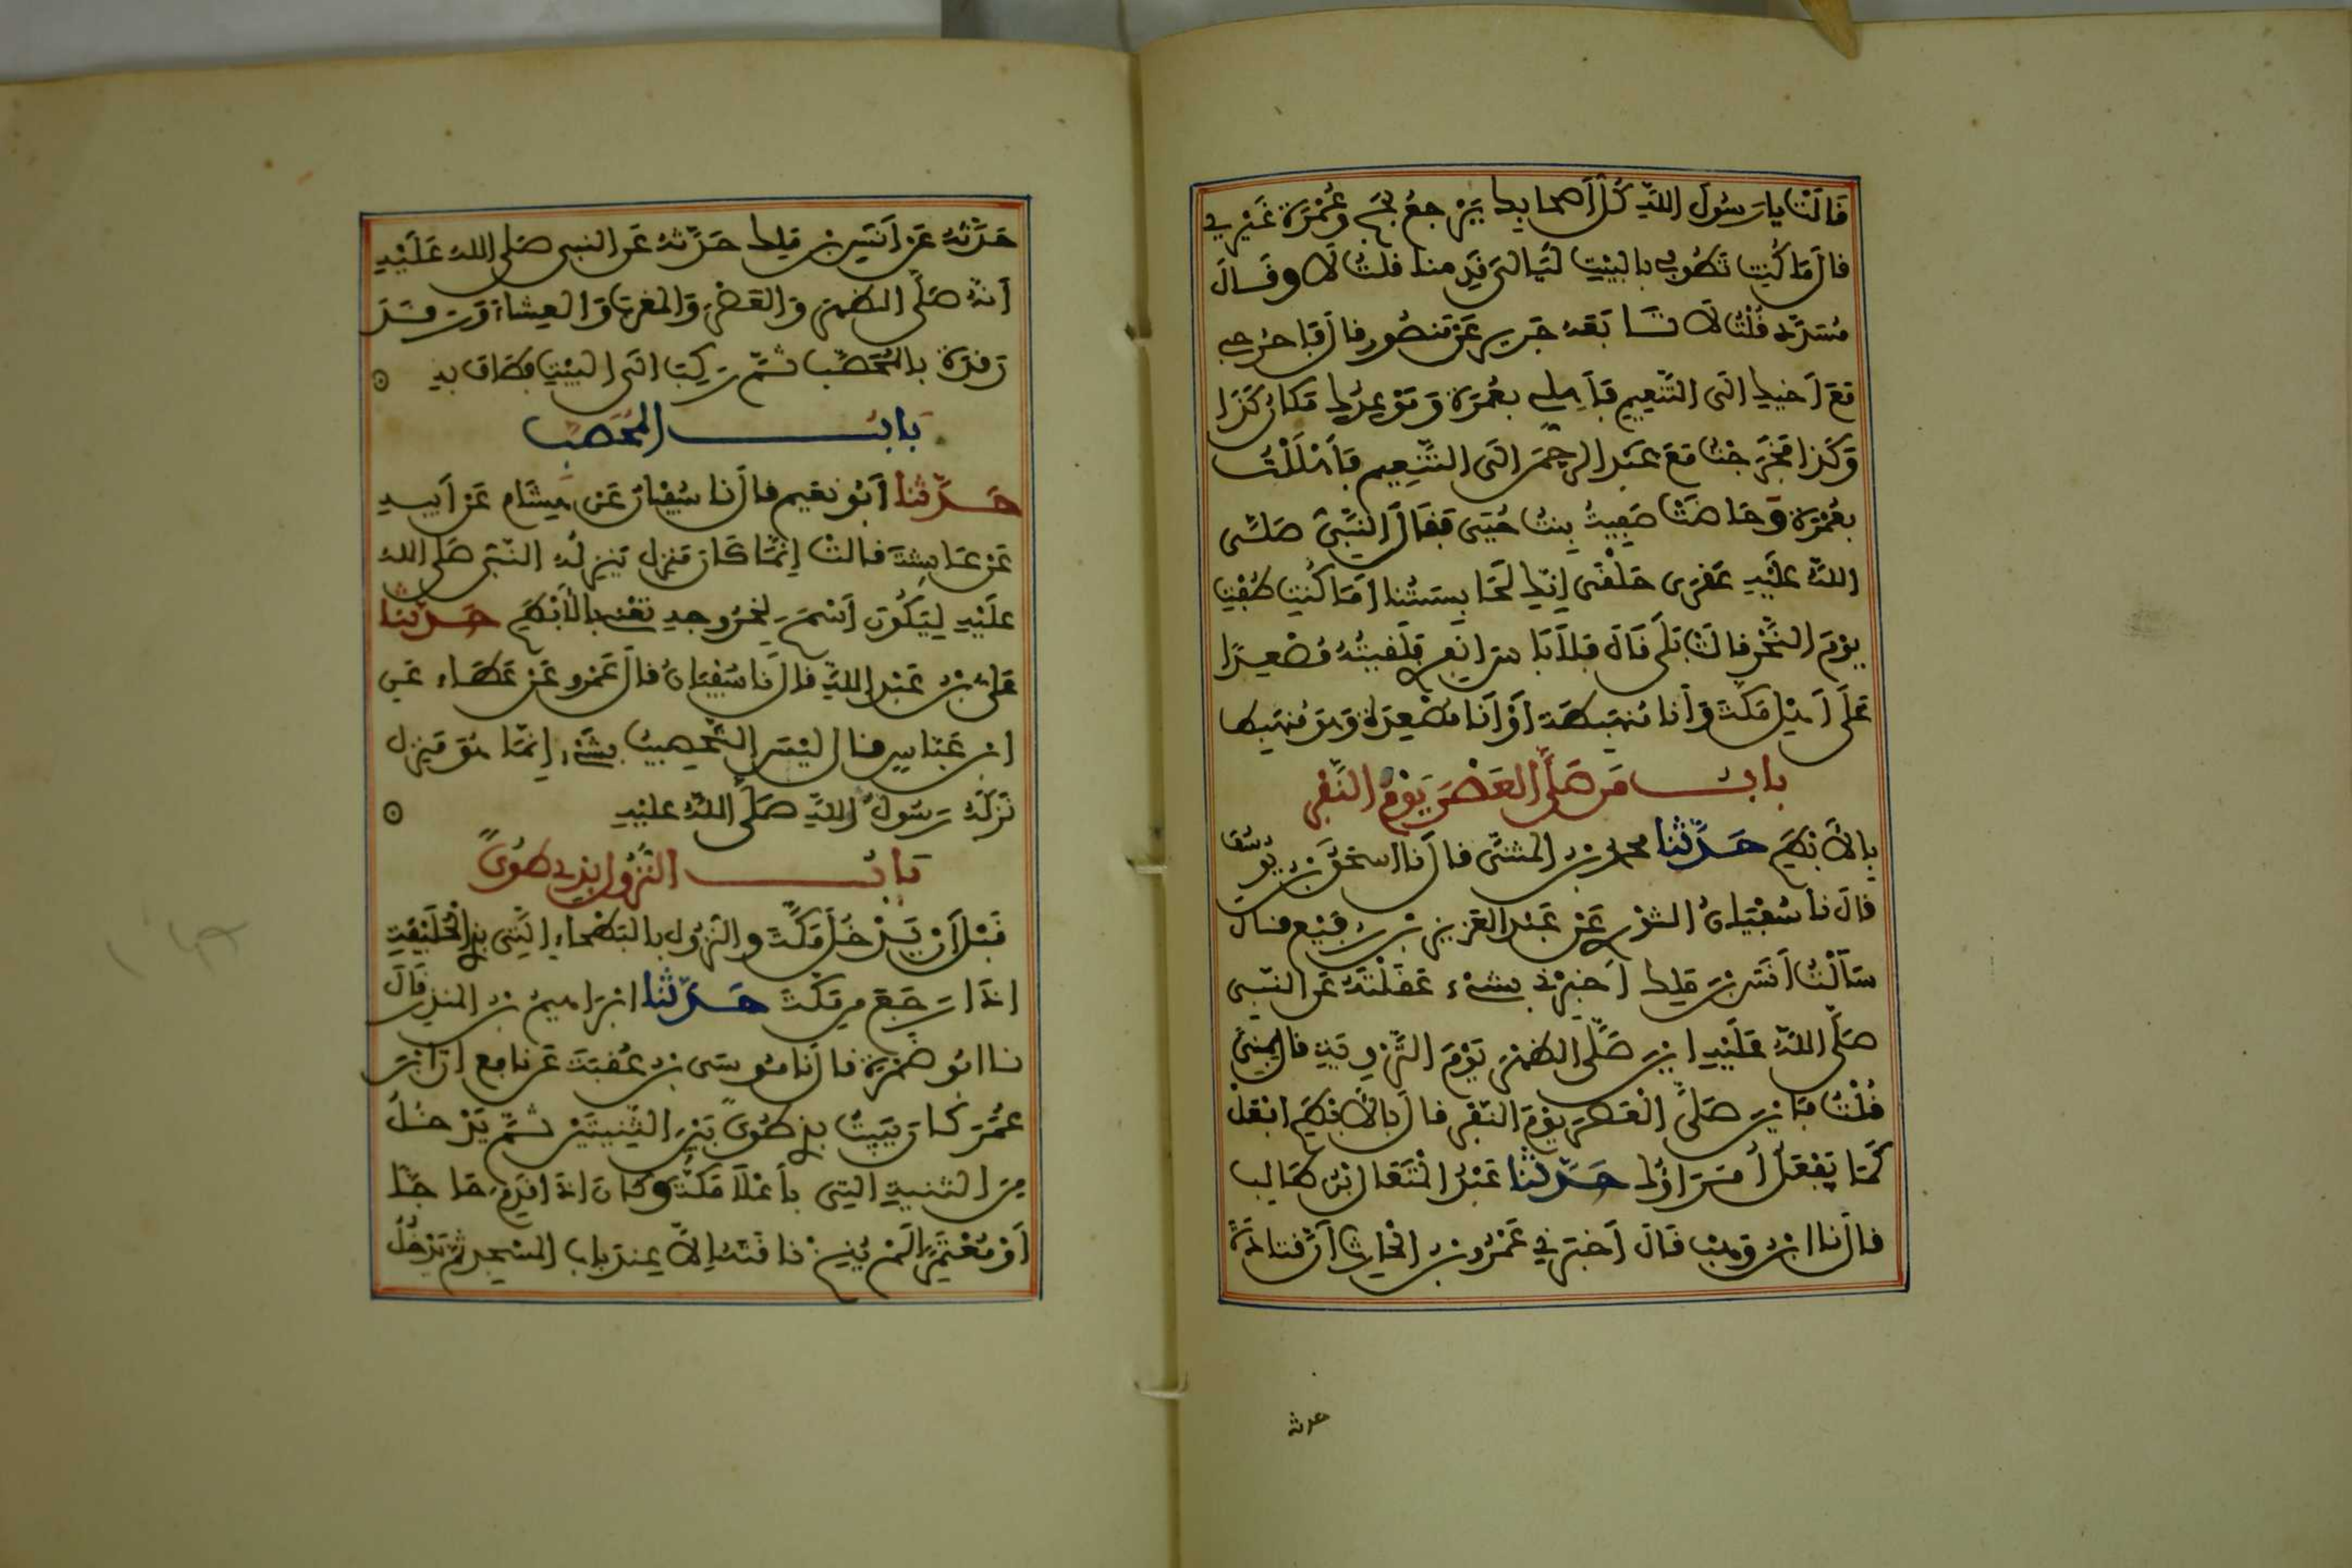 قَالَتْ يا رسُولَ اللَّهِ كُلُّ أصحابِكَ يَرْجِعُ بِحَجٍّ وعُمْرَةٍ غَيْرِي
قال مَا كُنتِ تَطُوفي بالبَيْتِ لَيَالِيَ قَدِمنا قلتُ لَا وقَالَ
مُسَدَّدٌ قُلْتُ لَا تَابَعَهُ جَرِير عَن مَنصُور قال فَاخرُجِي
مَعَ أخيكِ الَى التَّنعِيمِ فَأَهِلِّي بعُمْرَةٍ وَمَوْعِدُكِ مَكَانُ كَذَا
وَكَذَا فَخَرَجْتُ مَعَ عَبْدِ الرحمَن الَى التَّنْعِيمِ فَأَهْلَلْتُ
بعُمْرَةٍ وَحَاضَتْ صَفِيَّةُ بِنتُ حُيَيٍّ فَقَالَ النَّبِيُّ صَلَّى
اللَّهُ عَلَيْهِ عَقْرَى حَلْقَى إِنَّكِ لَحَابِسَتُنَا أمَا كُنتِ طُفْتِ
يَوْمَ النَّحْرِ قالَتْ بَلَى قَالَ فَلَا بَأسَ انفِرِي فَلَقِيتُهُ مُصْعِدًا
عَلَى أهْلِ مَكَّةَ وَأنا مُنهَبِطَةٌ أوْ أنَا مُصْعِدَةٌ وَهوَ مُنهَبِط
بابُ مَن صَلَّى العَصْرَ يَوْمَ النَّفْرِ
بالأَبْطَحِ حَدَّثنا محمد بن المثنَّى قال نا اسحقُ بن يُوسُفَ
قال نا سُفْيَانُ الثوْرِي عَنْ عَبْدِ العَزِيزِ بْنِ رُفَيْعٍ قَالَ
سَأَلْتُ أنَسَ بنَ مَلِك أخبِرْنِي بشَيْءٍ عَقَلْتَهُ عَن النبي
صَلَّى اللَّهُ عَلَيْهِ ايْنَ صَلَّى الظهْرَ يَوْمَ التَّرْوِيَةِ قال بمِنًى
قُلْتُ فَايْنَ صَلَّى الْعَصْرَ يَوْمَ النَّفْرِ قال بالأَبْطَحِ افْعَلْ
كَمَا يَفْعَلُ أُمَرَاؤُكَ حَدَّثنا عَبْدُ الْمُتَعَالِ بْنُ طَالِب
قال نا ابنُ وَهْب قَالَ أخبَرَنِي عَمْرُو بنُ الْحَارِث أنَّ قَتَادَةَ
حدثه
حَدَّثَهُ عَن أنَسِ بن مَلِك حَدَّثَهُ عَن النبي صَلى اللهُ عَلَيْهِ
أنَّهُ صَلَّى الظهرَ وَالعَصْرَ وَالمغرِبَ وَالعِشاءَ وَرَقَدَ
رَقْدَةً بالْمُحَصَّبِ ثُمَّ رَكِبَ الَى البَيْتِ فَطَافَ بهِ
بَابُ المُحَصَّب
حَدَّثنا أبُو نُعَيم قال نا سُفْيانُ عَن هِشَام عَن أبيهِ
عَن عَائِشَةَ قالتْ إنَّمَا كَانَ مَنزِل يَنزِلُهُ النَّبي صَلى اللهُ
عَلَيْهِ لِيَكُونَ أسْمَحَ لِخُرُوجِهِ تعْني بالأبْطَحِ حَدَّثنا
عَلي بنُ عَبْدِ اللَّهِ قال نَا سُفْيَانُ قالَ عَمْرو عَنْ عَطَاءٍ عَنِ
ابن عَبَّاسٍ قال لَيْسَ التَّحْصِيبُ بِشَيْءٍ إنَّمَا هُوَ مَنزِل
نَزَلَهُ رَسُولُ اللَّهِ صَلَّى اللَّهُ عليْهِ
بَابُ النُّزُولِ بذِي طُوًى
قَبْلَ أنْ يَدْخُلَ مَكَّةَ وَالنزُولِ بالبَطْحَاءِ الَّتِي بذِي الْحُلَيْفَةِ
اذَا رَجَعَ مِن مَكَّةَ حَدَّثنَا ابْرَاهِيمُ بنُ المنذِرِ قَالَ
نا ابُو ضَمْرَةَ قال نَا مُوسَى بنُ عُقْبَةَ عَن نافِع انَّ ابْنَ
عُمَرَ كَانَ يَبِيتُ بذِي طُوًى بَيْنَ الثَّنِيَّتَيْنِ ثُمَّ يَدْخُلُ
مِنَ الثنِيَّةِ الَّتِي بأعْلَا مَكَّةَ وكَانَ اذَا قَدِمَ حَاجًّا
أوْ مُعْتَمِرًا لَمْ يُنِخْ نَاقَتَهُ إلَّا عِندَ بَابِ المَسْجِدِ ثُمَّ يَدْخُلُ